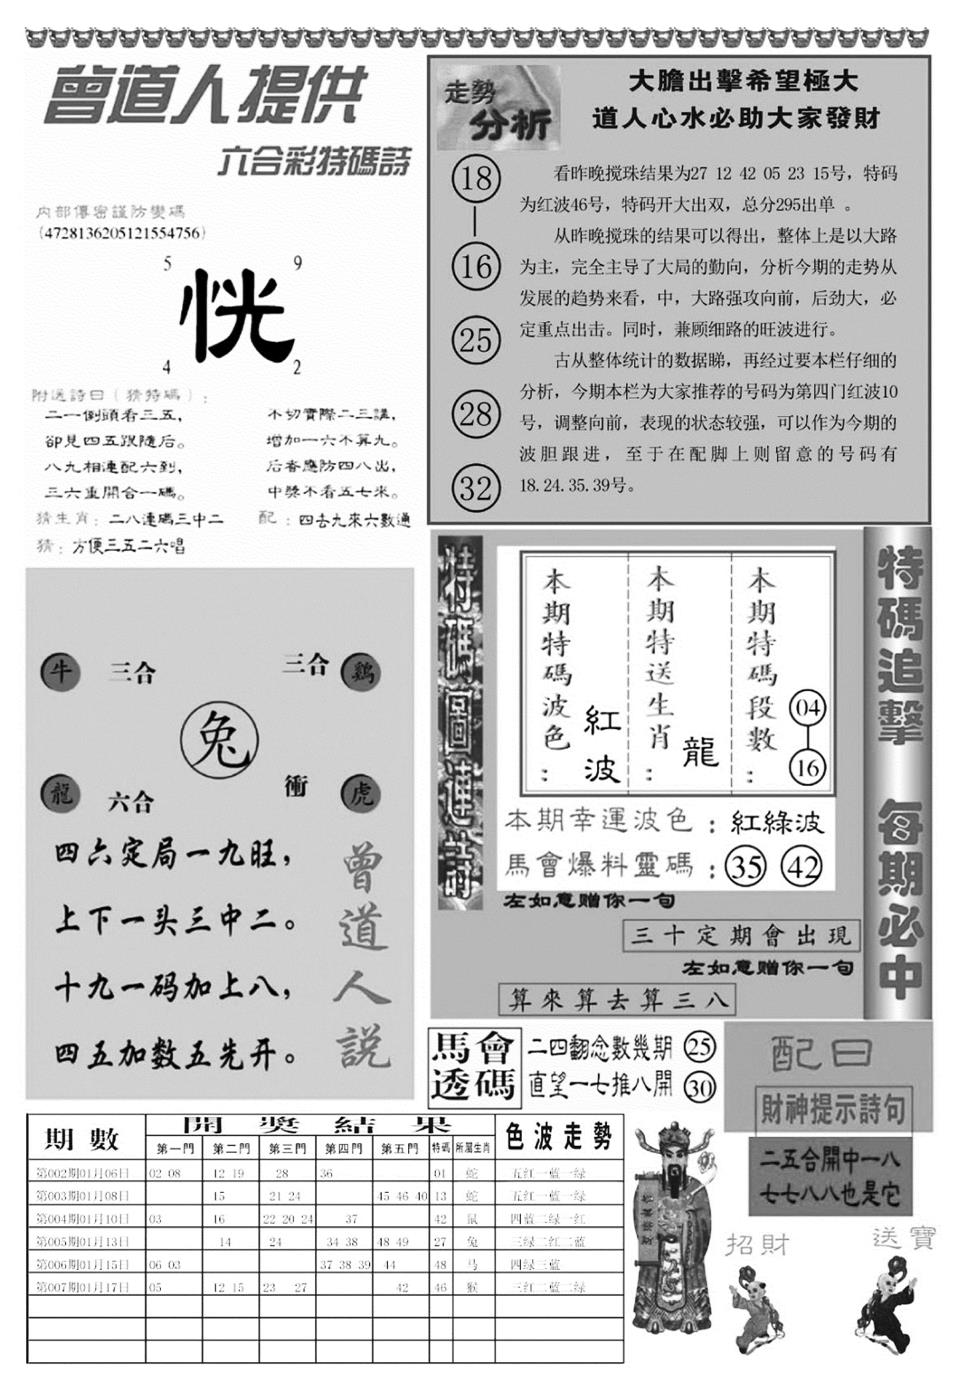 曾道人提供
六合彩特碼詩
内部傳密謹防變碼
(4728136205121554756)
5 9
恍
4 2
附送詩曰（猜特碼）：
二一倒頭看三五， 不切實際二三講，
卻見四五跟隨后。 增加一六不算九。
八九相連配六到， 后看應防四八出，
三六重開合一碼。 中獎不看五七來。
猜生肖：二八連碼三中二 配：四去九來六數通
猜：方便三五二六唱
走勢
分析
大膽出擊希望極大
道人心水必助大家發財
18
16
25
28
32
看昨晚搅珠结果为27 12 42 05 23 15号，特码
为红波46号，特码开大出双，总分295出单 。
从昨晚搅珠的结果可以得出，整体上是以大路
为主，完全主导了大局的勤向，分析今期的走势从
发展的趋势来看，中，大路强攻向前，后劲大，必
定重点出击。同时，兼顾细路的旺波进行。
古从整体统计的数据睇，再经过要本栏仔细的
分析，今期本栏为大家推荐的号码为第四门红波10
号，调整向前，表现的状态较强，可以作为今期的
波胆跟进，至于在配脚上则留意的号码有
18.24.35.39号。
牛 三合 三合 鷄
兔
龍 六合 衝 虎
四六定局一九旺，
上下一头三中二。
十九一码加上八，
四五加数五先开。
曾道人説
特碼圖進莊
本期特碼波色：紅波
本期特送生肖：龍
本期特碼段數：04 16
本期幸運波色：紅綠波
馬會爆料靈碼：35 42
左如意赠你一句
三十定期會出現
左如意赠你一句
算來算去算三八
特碼追擊 每期必中
馬會透碼
二四翻念數幾期 25
直望一七推八開 30
配曰
財神提示詩句
二五合開中一八
七七八八也是它
招財
送寶
期數 開獎結果 色波走勢
第一門 第二門 第三門 第四門 第五門 特碼 所屬生肖
第002期01月06日 02 08 12 19 28 36 01 蛇 五红一蓝一绿
第003期01月08日 15 21 24 45 46 40 13 蛇 五红一蓝一绿
第004期01月10日 03 16 22 20 24 37 42 鼠 四蓝二绿一红
第005期01月13日 14 24 34 38 48 49 27 兔 三绿二红二蓝
第006期01月15日 06 03 37 38 39 44 48 马 四绿三蓝
第007期01月17日 05 12 15 23 27 42 46 猴 三红二蓝二绿